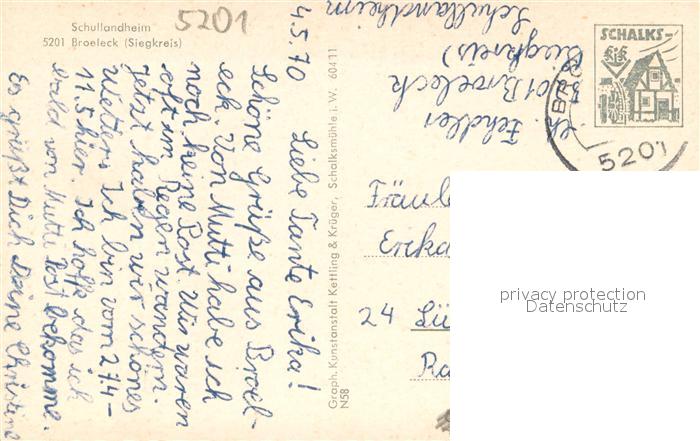 Schullandheim
5201 Broeleck (Siegkreis)
5201
4.5.70
Liebe Tante Erika!
Schöne Grüße aus Broel-
eck. Von Mutti habe ich
noch keine Post. Wir waren
oft im Regen wandern.
Jetzt haben wir schönes
Wetter. Ich bin vom 27.4-
11.5 hier. Ich hoffe das ich
bald von Mutti Post bekomme.
Es grüßt Dich Deine Christine
Graph. Kunstanstalt Kettling & Krüger, Schalksmühle i. W. 60411
N58
Fehdler
5201 Broeleck
(Siegkreis)
Schullandheim
SCHALKS-
5201
Fräule
Erika
24 Lü
Ra
privacy protection
Datenschutz